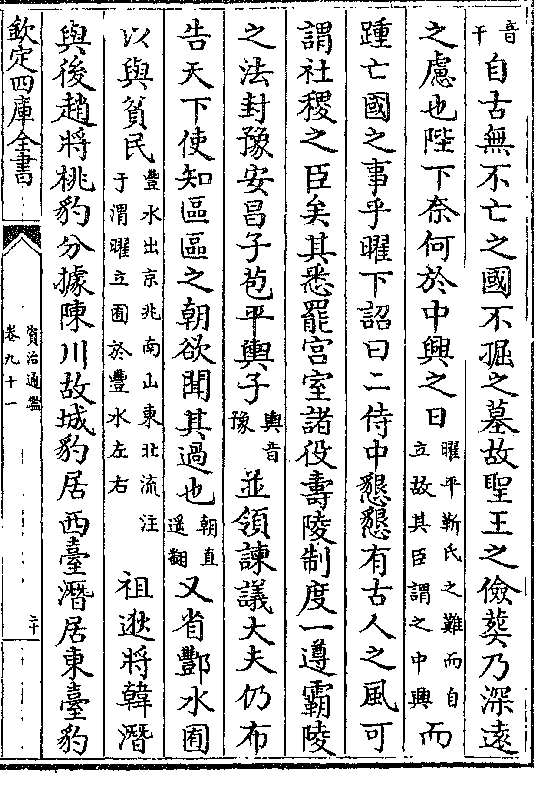 音干自古無不亡之國不掘之墓故聖王之儉葬乃深遠
之慮也陛下奈何於中興之日曜平靳氏之難而自立故其臣謂之中興而
踵亡國之事乎曜下詔曰二侍中懇懇有古人之風可
謂社稷之臣矣其悉罷宫室諸役壽陵制度一遵霸陵
之法封豫安昌子苞平輿子輿音豫並領諫議大夫仍布
告天下使知區區之朝欲聞其過也朝直遥翻又省酆水囿
以與貧民豐水出京兆南山東北流注于渭曜立囿於豐水左右祖逖將韓潛
與後趙將桃豹分據陳川故城豹居西臺潛居東臺豹
欽定四庫全書
資治通鑑
卷九十一
二十